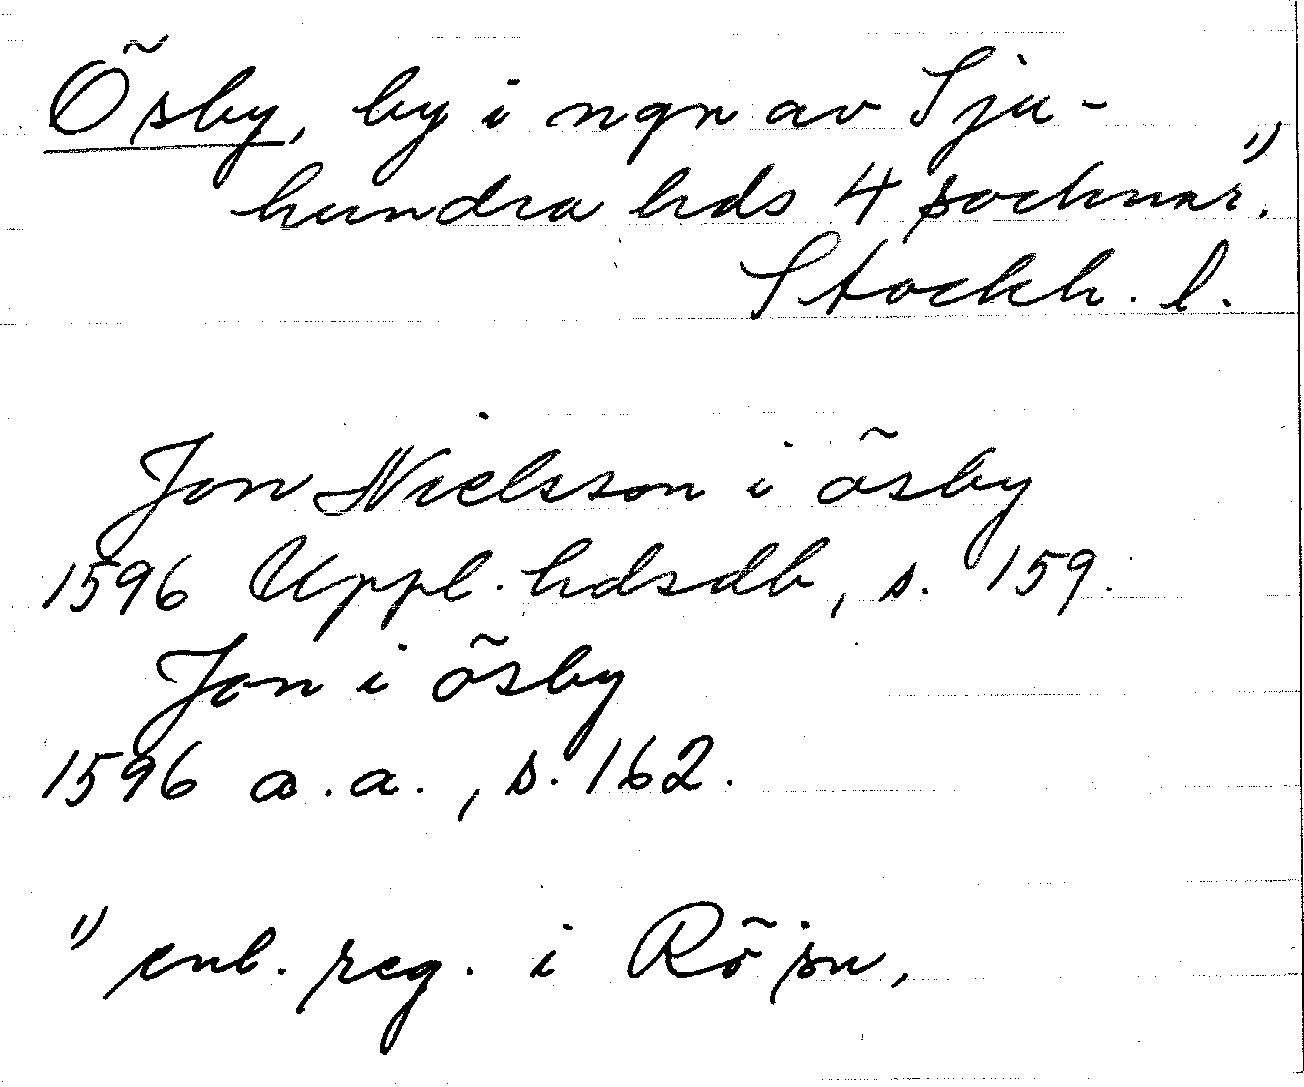 Ösby, by i ngn av Sju-
hundra hds 4 socknar. 1)
Stockh. l.
Jon Nielsson i ösby
1596 Uppl. hdsdb, s. 159.
Jon i ösby
1596 a.a., s. 162.
1) enl. reg. i Rö sn,